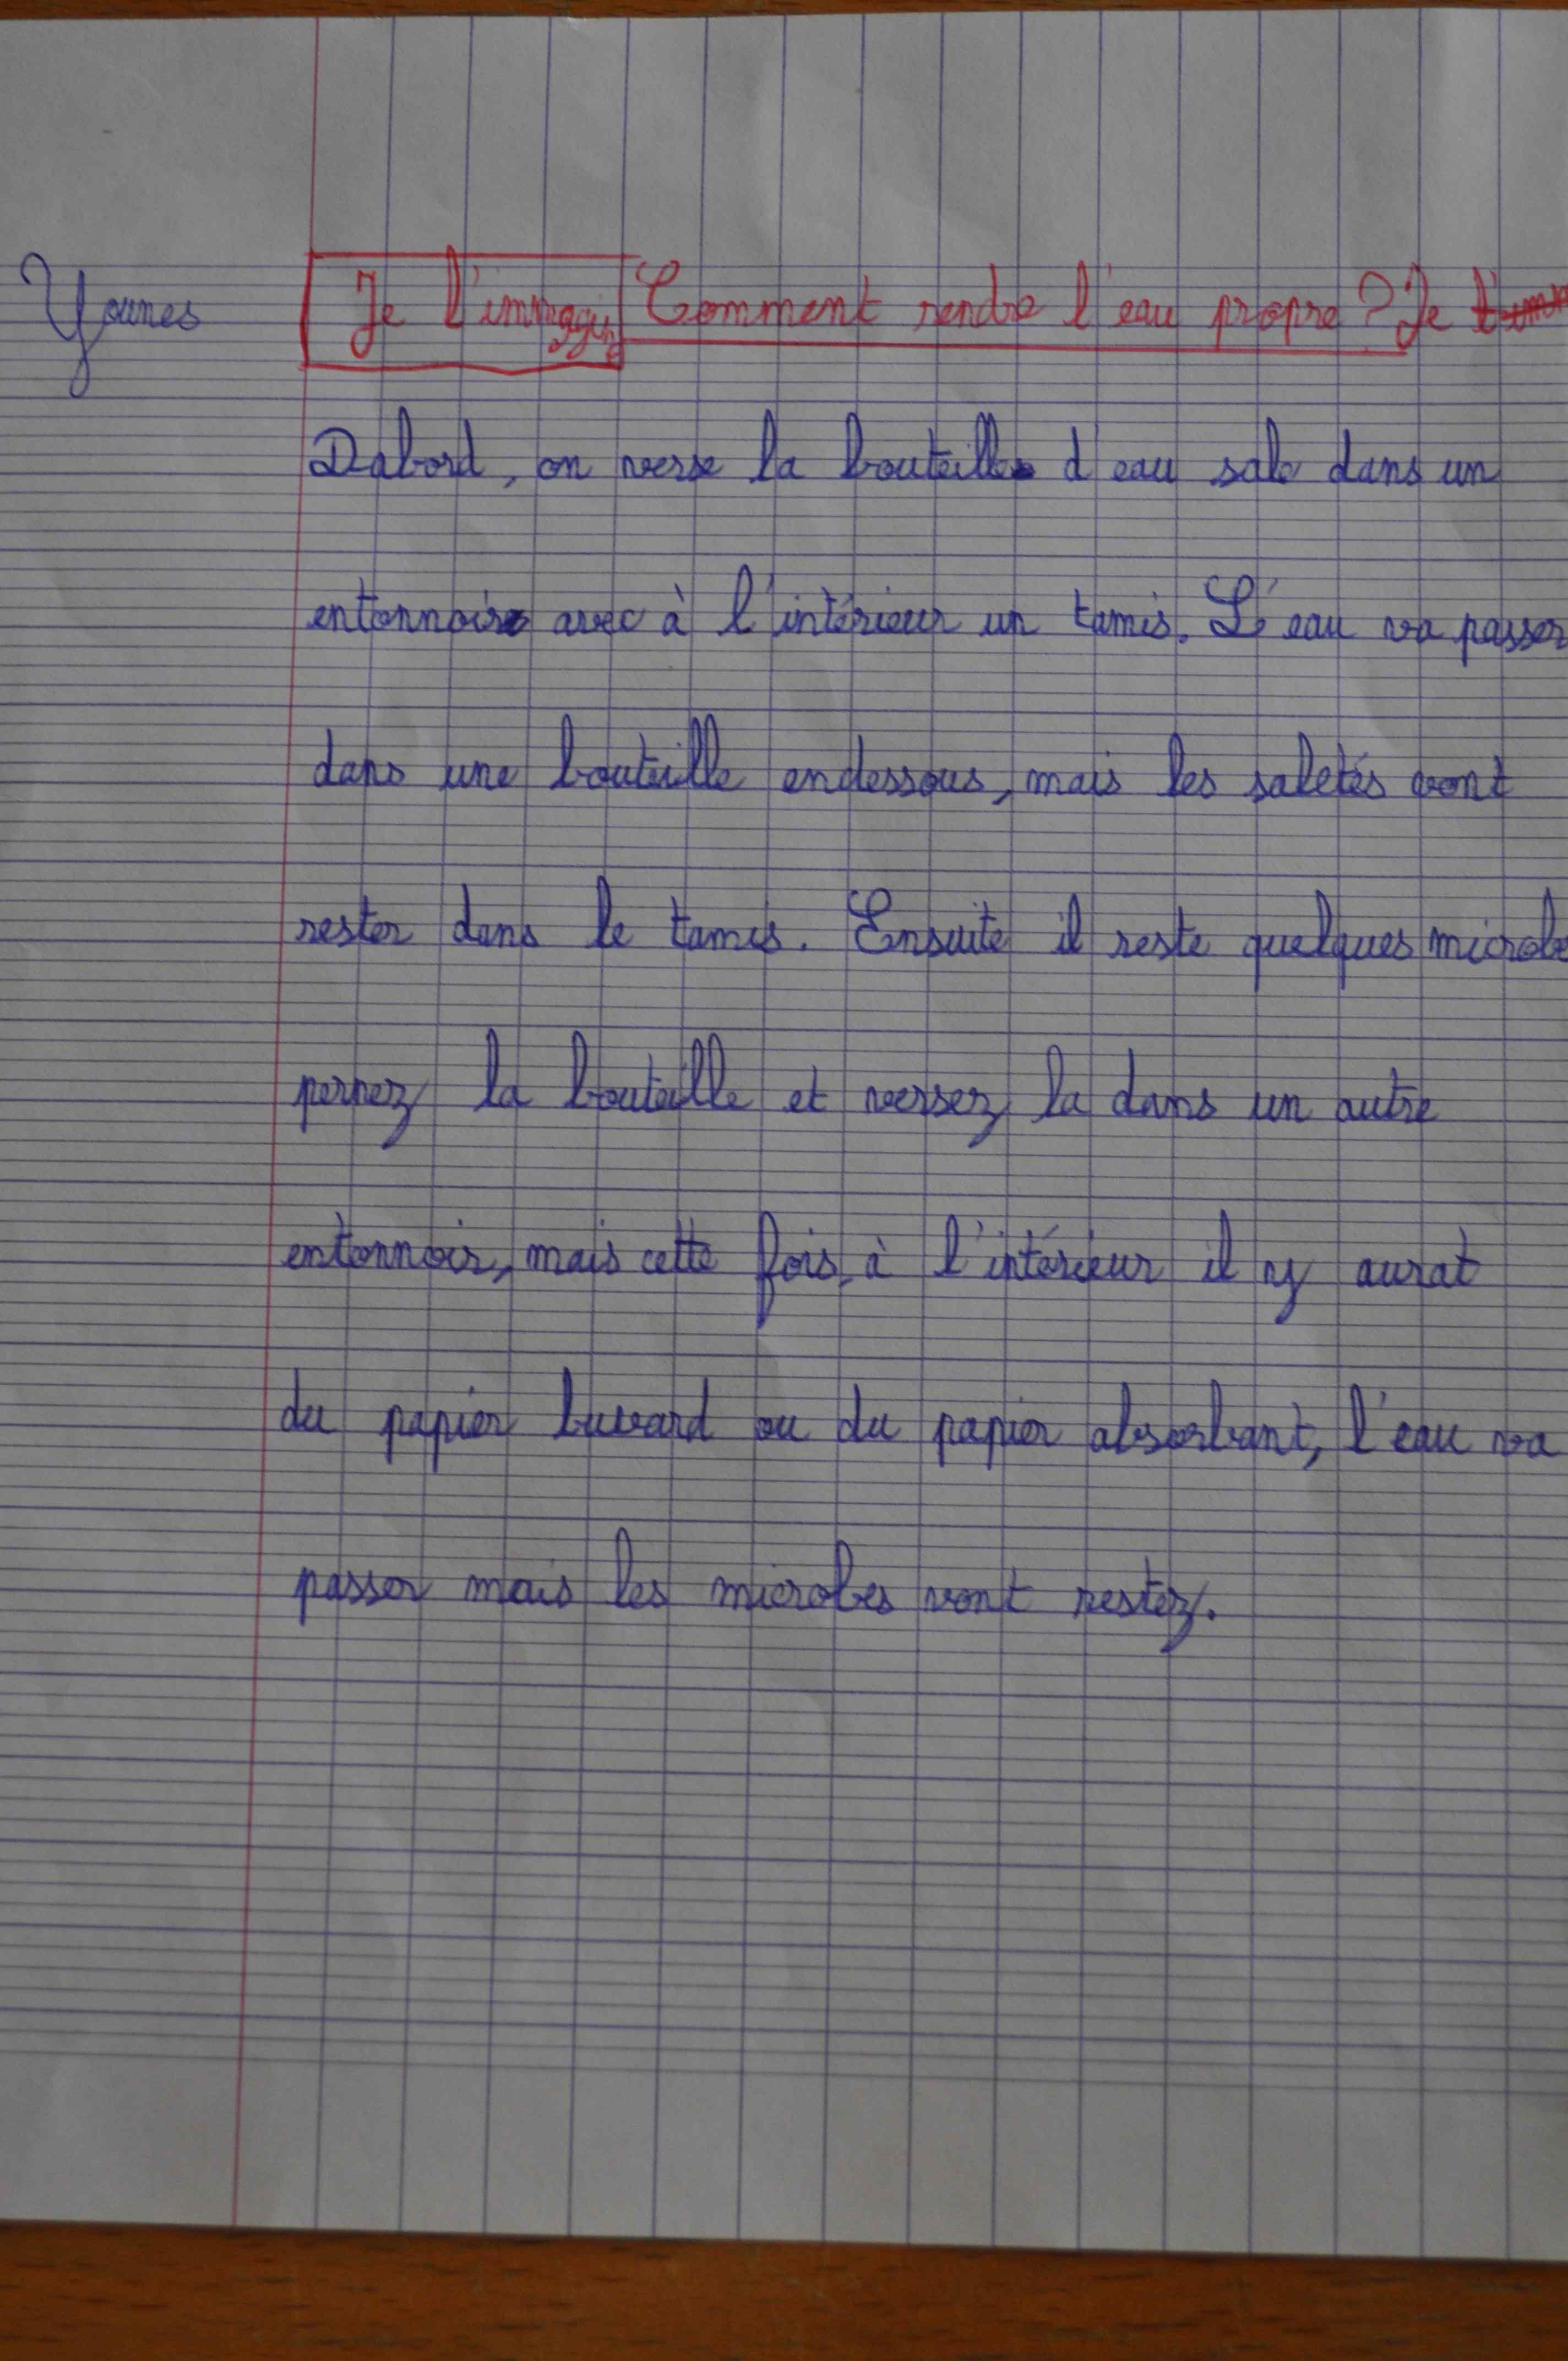 Younes
Je l'immaggine Comment rendre l'eau propre ? Je
Dabord, on verse la bouteille d'eau sale dans un
entonnoir avec à l'intérieur un tamis. L'eau va passer
dans une bouteille endessous, mais les saletés vont
rester dans le tamis. Ensuite il reste quelques microbe
pernez la bouteille et versez la dans un autre
entonnoir, mais cette fois, à l'intérieur il y aurat
du papier buvard ou du papier absorbant, l'eau va
passer mais les microbes vont restez.